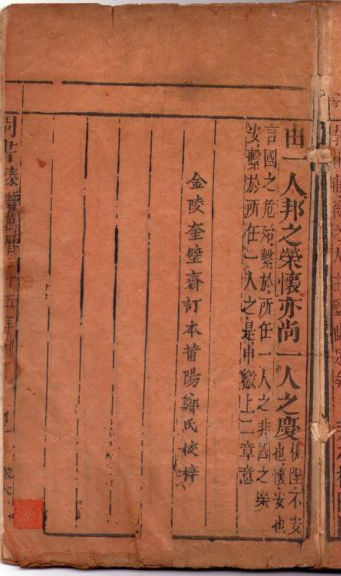 由一人邦之榮懷亦尚一人之慶
杌隉不安
也懷安也
言國之危殆繫於所任一人之非國之榮
安繫於所任一人之是申繳上二章意
金陵奎璧齋訂本莆陽鄭氏校梓
周書秦誓